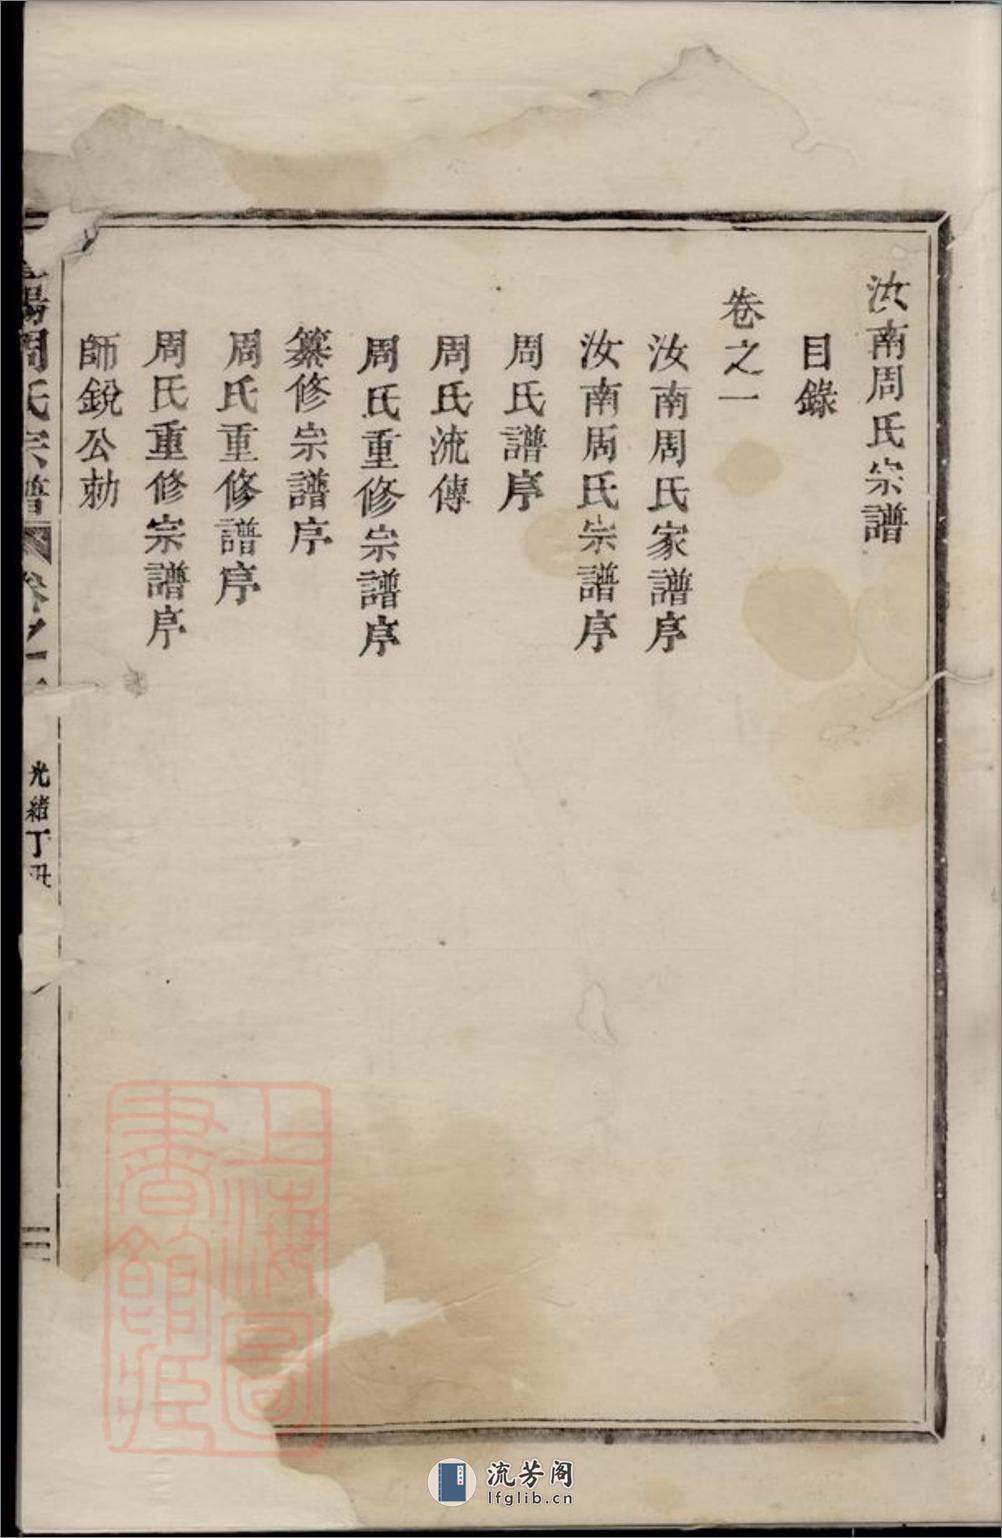 汝南周氏宗譜
目錄
卷之一
汝南周氏家譜序
汝南周氏宗譜序
周氏譜序
周氏流傳
周氏重修宗譜序
纂修宗譜序
周氏重修譜序
周氏重修宗譜序
師銳公勅
陽周氏宗譜
卷之一
光緒丁丑
二
上海圖
書館藏
流芳阁
lfglib.cn